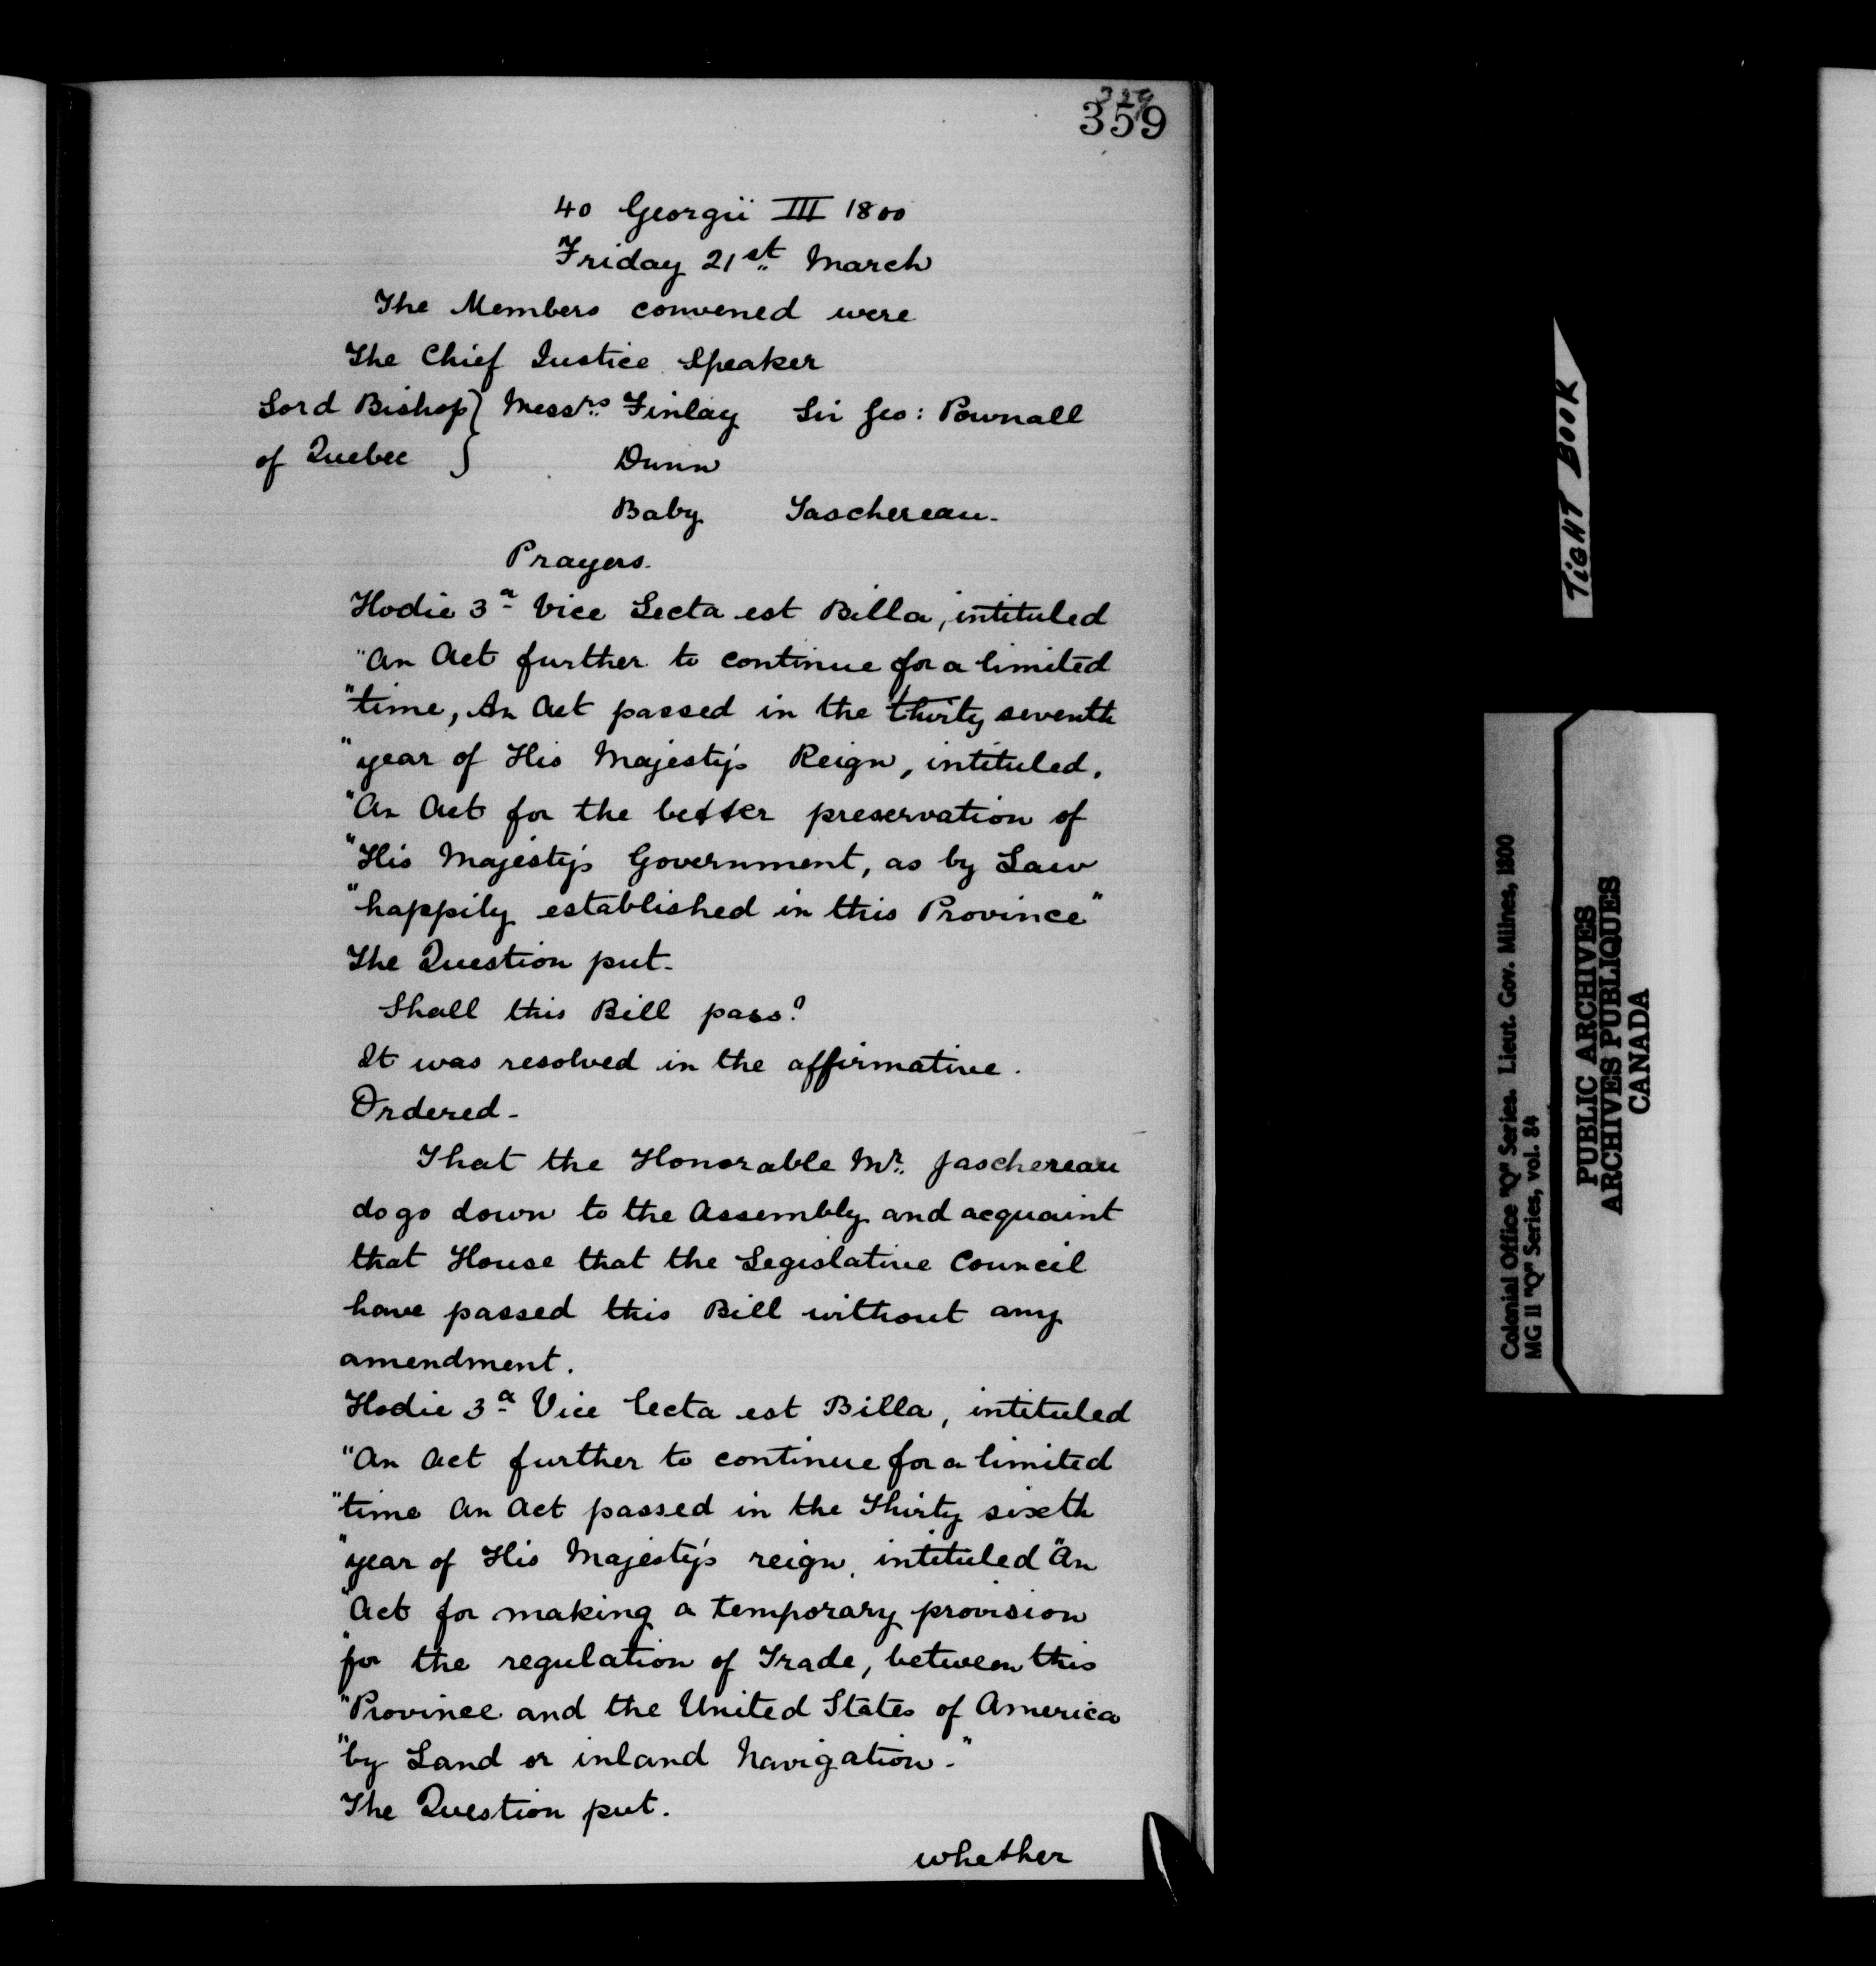 359
40 Georgii III 1800
Friday 21st March
The Members convened were
The Chief Justice Speaker
Lord Bishop} Messrs. Finlay Sir Geo: Pownall
of Quebec } Dunn
Baby Taschereau.
Prayers.
Hodie 3a Vice Lecta est Billa, intituled
"An Act further to continue for a limited
"time, An Act passed in the thirty seventh
"year of His Majesty's Reign, intituled,
"An Act for the better preservation of
"His Majesty's Government, as by Law
"happily established in this Province"
The Question put.
Shall this Bill pass?
It was resolved in the affirmative.
Ordered-
That the Honorable Mr. Taschereau
do go down to the Assembly and acquaint
that House that the Legislative Council
have passed this Bill without any
amendment.
Hodie 3a Vice lecta est Billa, intituled
"An Act further to continue for a limited
"time An Act passed in the Thirty sixth
"year of His Majesty's reign, intituled "An
"Act for making a temporary provision
"for the regulation of Trade, between this
"Province and the United States of America
"by Land or inland Navigation."
The Question put.
whether
TIGHT BOOK
Colonial Office "Q" Series. Lieut. Gov. Milnes, 1800
MG 11 "Q" Series, vol. 84
PUBLIC ARCHIVES
ARCHIVES PUBLIQUES
CANADA